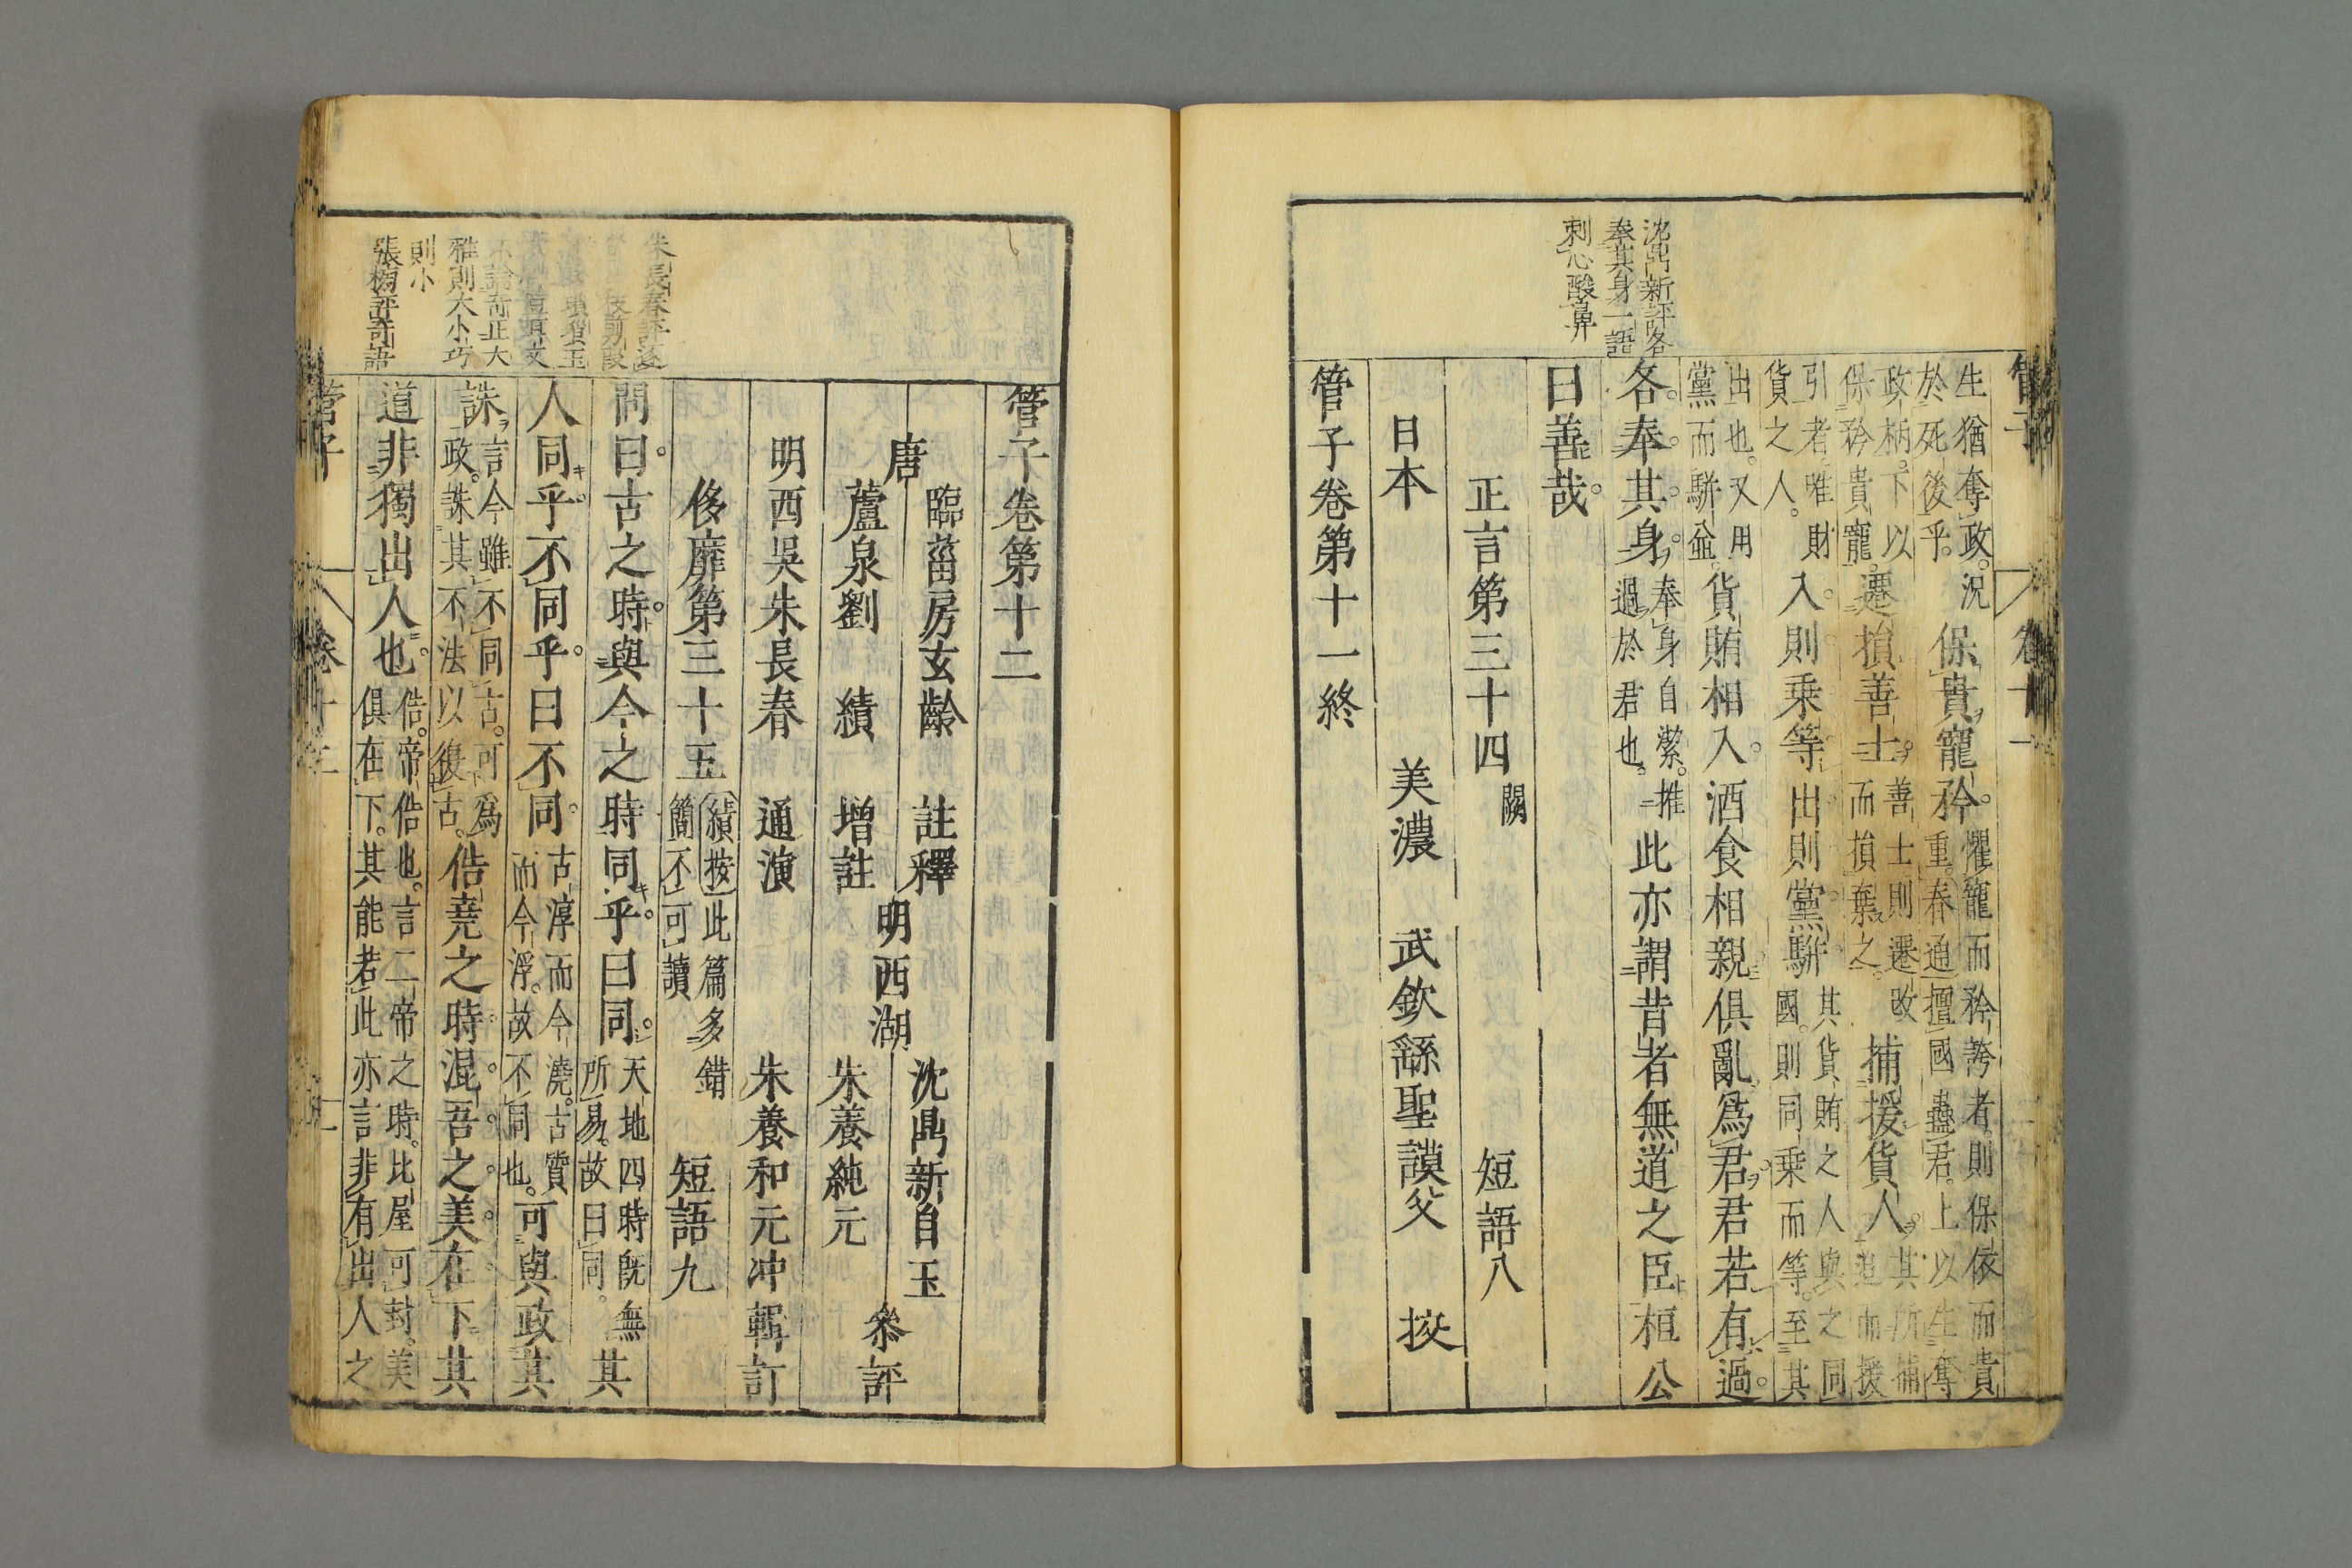 沈鼎新評各
奉其身一語
刺心酸鼻
生猶奪政況
於死後乎
保貴寵矜
懼寵而矜誇者則保依而貴
重春通擅國蠹君上以生奪
政柄下以
保矜貴寵
遷損善士
善士則遷改
而損棄之
捕援貨人
其所捕
追而援
引者唯財
貨之人
入則乗等出則黨駢
其貨賄之人與之同
國則同乗而等至其
出也又用
黨而駢益
貨賄相入酒食相親俱亂爲君君若有過
各奉其身
奉身自潔推
過於君也
此亦謂昔者無道之臣桓公
曰善哉
正言第三十四
闕
短語八
日本 美濃 武欽繇聖謨父 挍
管子卷第十一終
朱長春評逐
不論奇正大
雅則大小巧
則小
張榜評奇語
管子卷第十二
唐
臨菑房玄齡 註釋
蘆泉劉績 增註
明西湖
沈鼎新自玉
朱養純元
叅評
明西吳朱長春 通演
朱養和元冲 輯訂
侈靡第三十五
績按此篇多錯
簡不可讀
短語九
問曰古之時與今之時同乎曰同
天地四時旣無
所易故曰同
其
人同乎不同乎曰不同
古淳而今澆古質
而今浮故不同也
可與政其
誅
言今雖不同古可爲
政誅其不法以復古
俈堯之時混吾之美在下其
道非獨出人也
俈帝俈也言二帝之時比屋可封美
俱在下其能者此亦言非有出人之